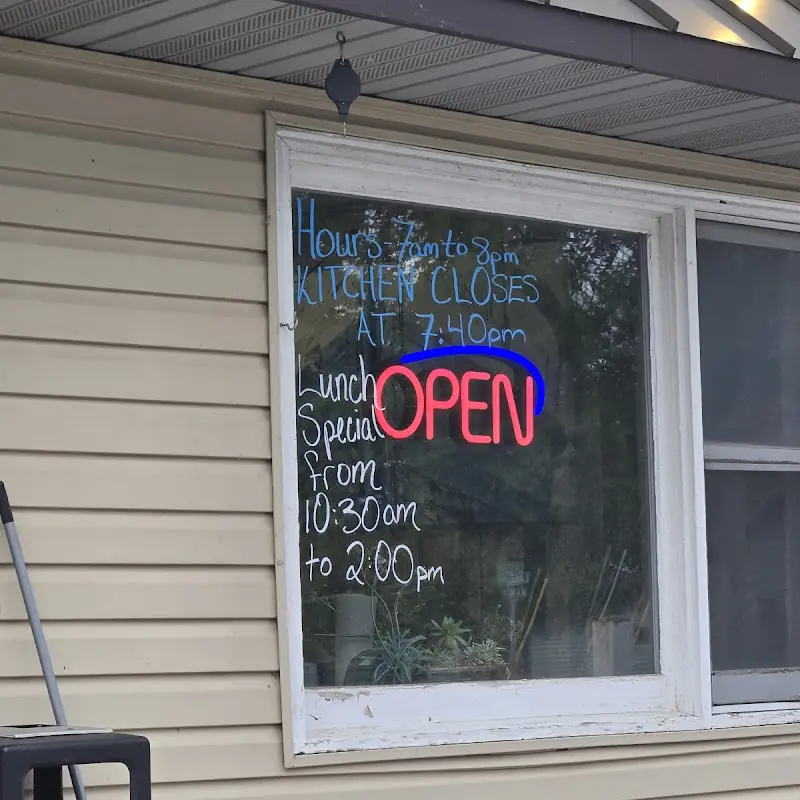 Hours-7am to 8pm
KITCHEN CLOSES
AT 7:40pm
OPEN
Lunch
Special
from
10:30am
to 2:00pm